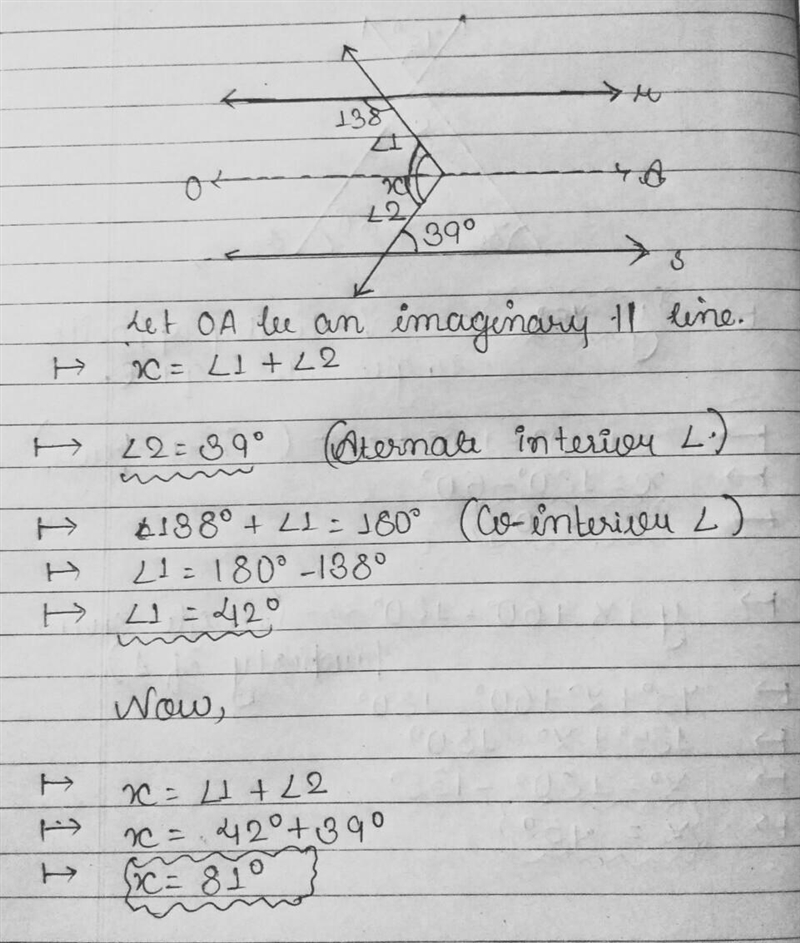 138
∠1
O
x
A
∠2
39°
s
Let OA be an imaginary || line.
↦ x = ∠1 + ∠2
↦ ∠2 = 39° (Aternate interior ∠.)
↦ ∠138° + ∠1 = 180° (Co-interior ∠)
↦ ∠1 = 180° - 138°
↦ ∠1 = 42°
Now,
↦ x = ∠1 + ∠2
↦ x = 42° + 39°
↦ x = 81°